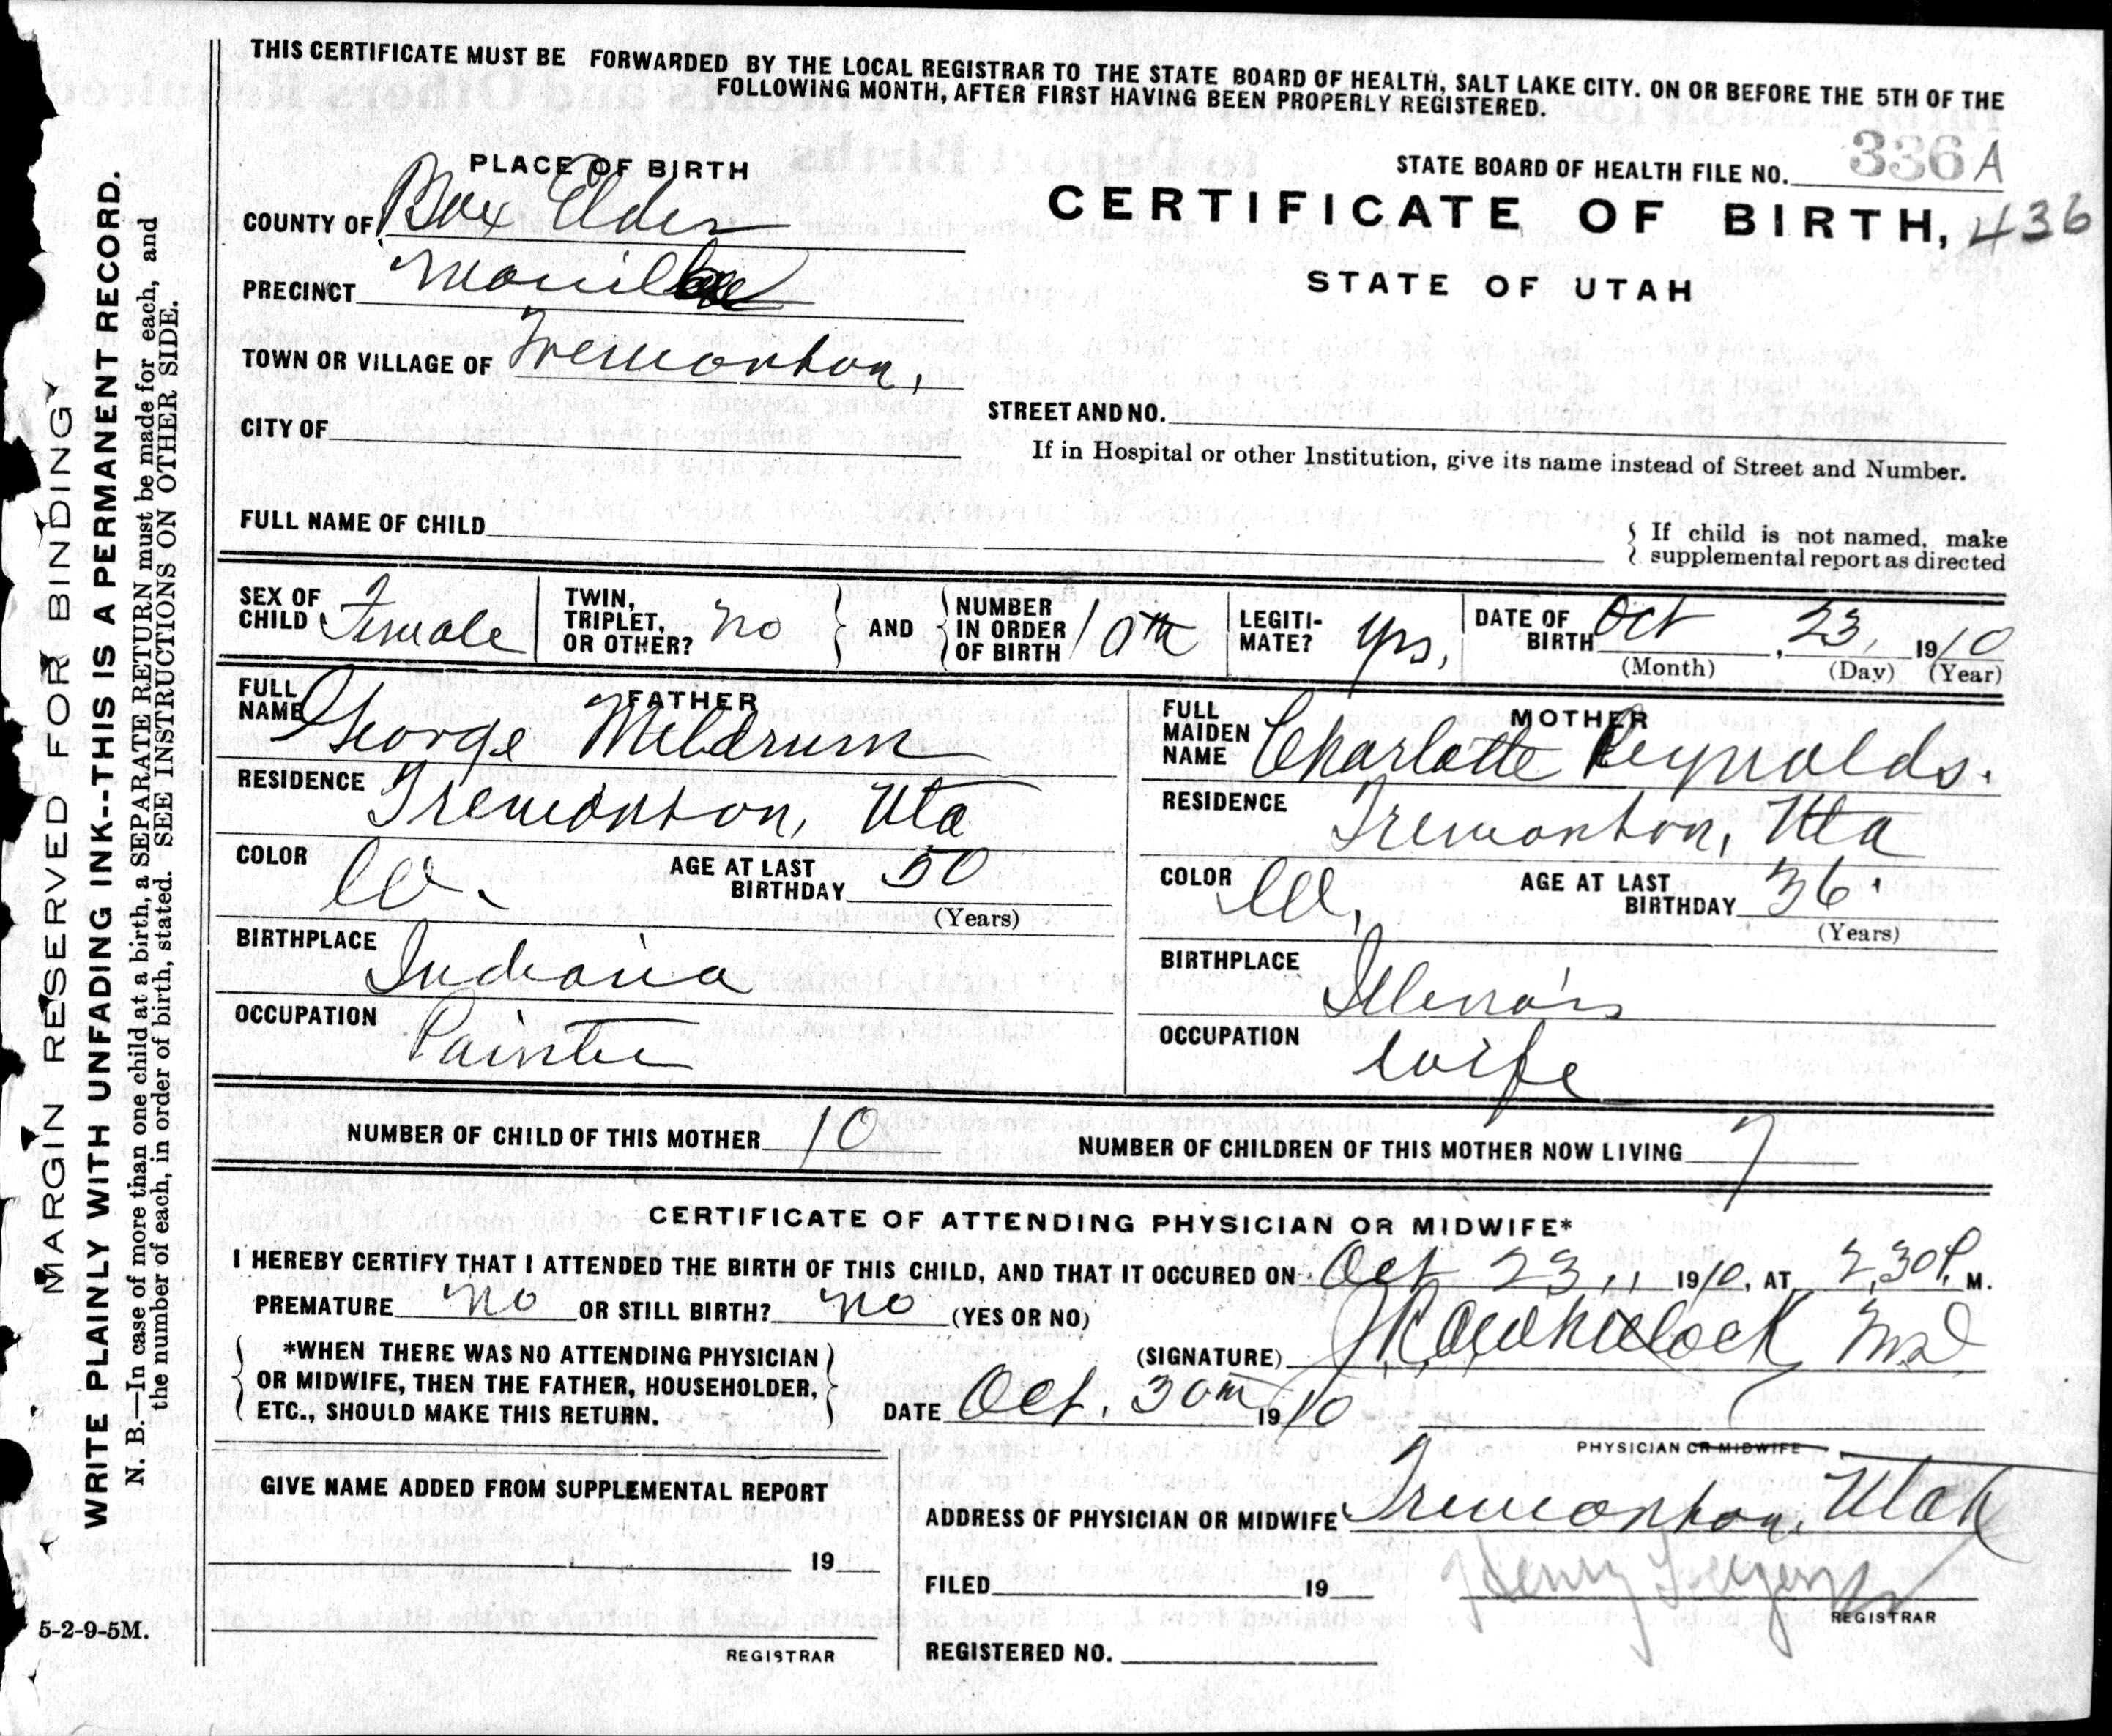 THIS CERTIFICATE MUST BE FORWARDED BY THE LOCAL REGISTRAR TO THE STATE BOARD OF HEALTH, SALT LAKE CITY. ON OR BEFORE THE 5TH OF THE
FOLLOWING MONTH, AFTER FIRST HAVING BEEN PROPERLY REGISTERED.
PLACE OF BIRTH
STATE BOARD OF HEALTH FILE NO. 336 A
COUNTY OF Box Elder
CERTIFICATE OF BIRTH, 436
PRECINCT
STATE OF UTAH
TOWN OR VILLAGE OF Tremonton,
STREET AND NO.
CITY OF
If in Hospital or other Institution, give its name instead of Street and Number.
FULL NAME OF CHILD
{ If child is not named, make
supplemental report as directed
SEX OF CHILD Female
TWIN, TRIPLET, OR OTHER? no } AND { NUMBER IN ORDER OF BIRTH 10th
LEGITI-MATE? yes,
DATE OF BIRTH Oct, 23, 1910
(Month) (Day) (Year)
FATHER
FULL NAME George Meldrum
RESIDENCE Tremonton, Uta
COLOR W. AGE AT LAST BIRTHDAY 50
(Years)
BIRTHPLACE Indiana
OCCUPATION Painter
MOTHER
FULL MAIDEN NAME Charlotte Reynolds.
RESIDENCE Tremonton, Uta
COLOR W. AGE AT LAST BIRTHDAY 36
(Years)
BIRTHPLACE Illenois
OCCUPATION Wife
NUMBER OF CHILD OF THIS MOTHER 10 NUMBER OF CHILDREN OF THIS MOTHER NOW LIVING 7
CERTIFICATE OF ATTENDING PHYSICIAN OR MIDWIFE*
I HEREBY CERTIFY THAT I ATTENDED THE BIRTH OF THIS CHILD, AND THAT IT OCCURED ON Oct 23, 1910, AT 2,30 P. M.
PREMATURE no OR STILL BIRTH? no (YES OR NO)
{ *WHEN THERE WAS NO ATTENDING PHYSICIAN
OR MIDWIFE, THEN THE FATHER, HOUSEHOLDER,
ETC., SHOULD MAKE THIS RETURN. }
(SIGNATURE) MD
DATE Oct. 30th 1910
PHYSICIAN OR MIDWIFE
GIVE NAME ADDED FROM SUPPLEMENTAL REPORT
19
REGISTRAR
ADDRESS OF PHYSICIAN OR MIDWIFE Tremonton, Utah
FILED 19 Henry
REGISTRAR
REGISTERED NO.
MARGIN RESERVED FOR BINDING
WRITE PLAINLY WITH UNFADING INK--THIS IS A PERMANENT RECORD.
N. B.—In case of more than one child at a birth, a SEPARATE RETURN must be made for each, and
the number of each, in order of birth, stated. SEE INSTRUCTIONS ON OTHER SIDE.
5-2-9-5M.